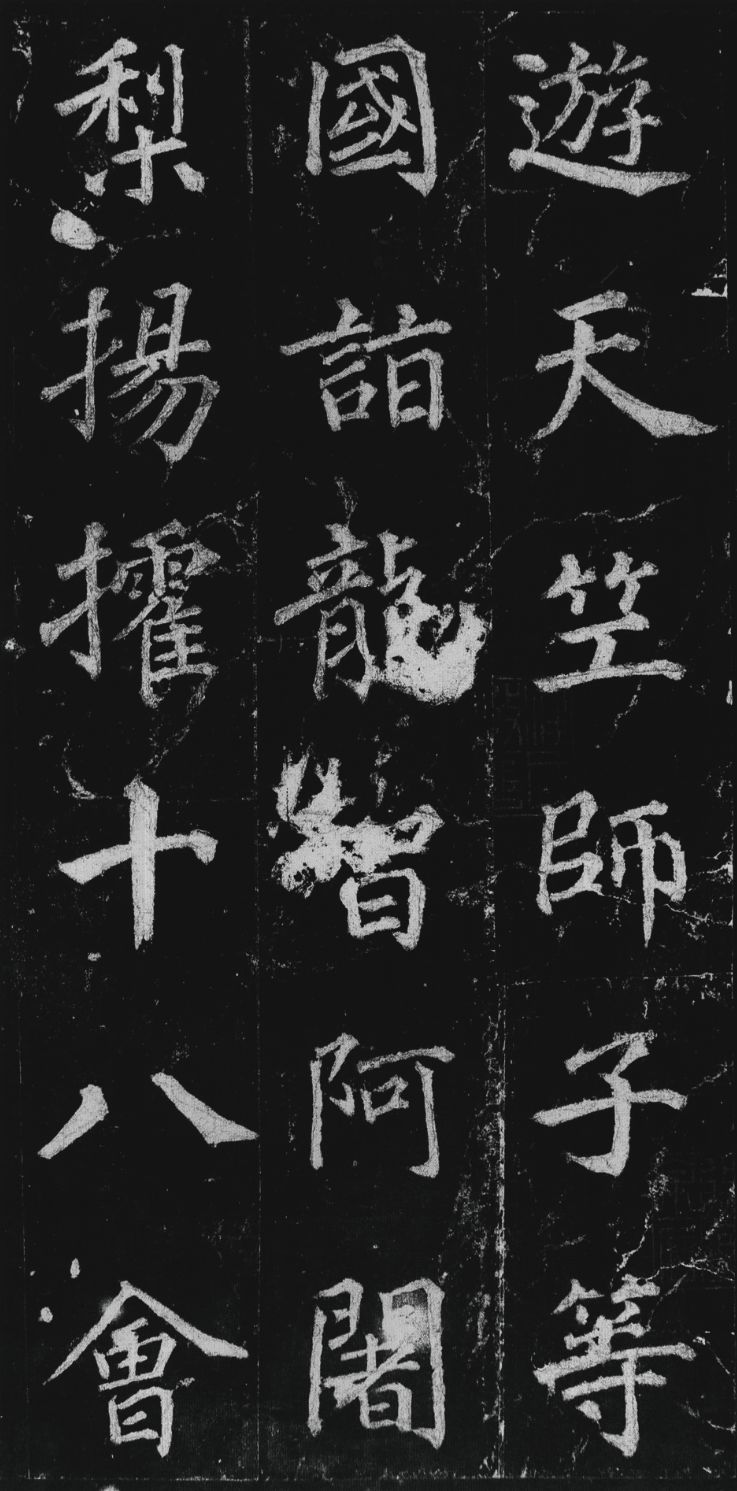 遊天竺師子等
國詣龍智阿闍
梨揚搉十八會